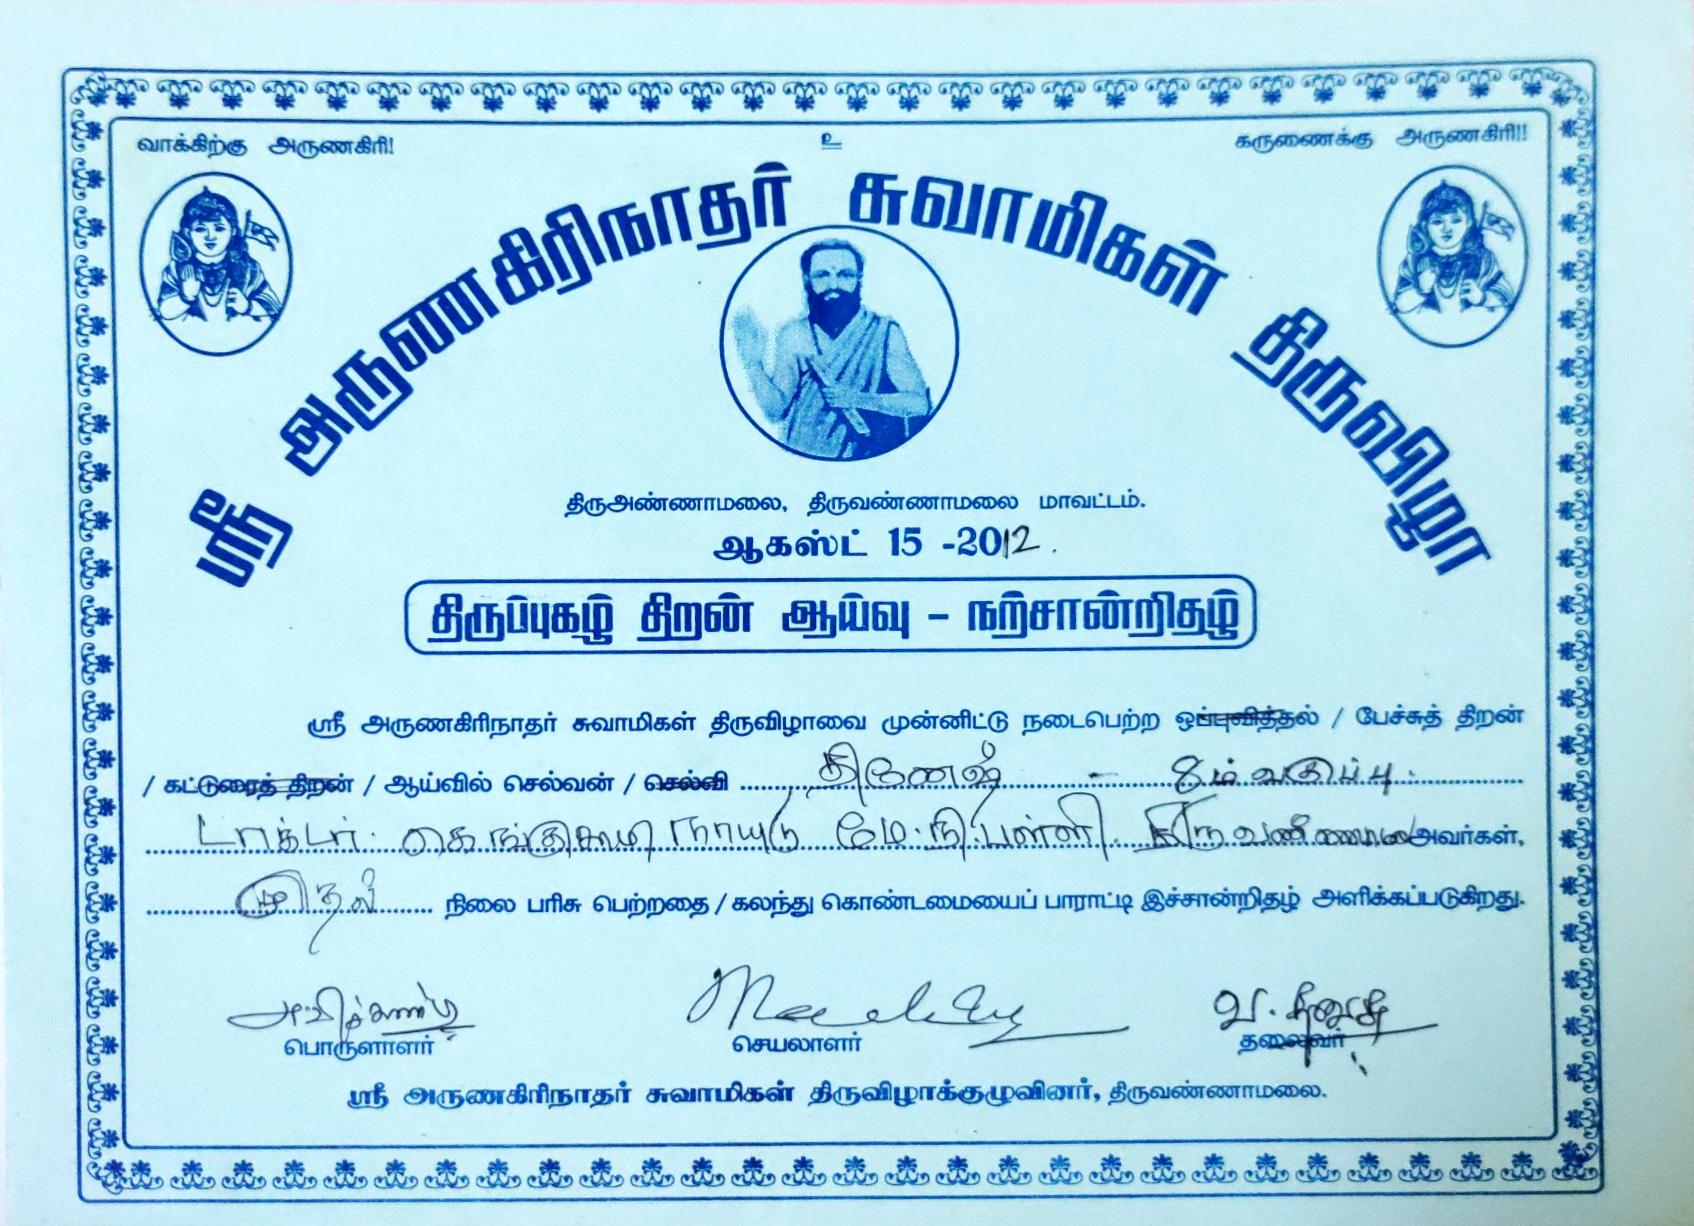 வாக்கிற்கு அருணகிரி!
உ
கருணைக்கு அருணகிரி!!
ஸ்ரீ அருணகிரிநாதர் சுவாமிகள் திருவிழா
திருஅண்ணாமலை, திருவண்ணாமலை மாவட்டம்.
ஆகஸ்ட் 15 -2012.
திருப்புகழ் திறன் ஆய்வு - நற்சான்றிதழ்
ஸ்ரீ அருணகிரிநாதர் சுவாமிகள் திருவிழாவை முன்னிட்டு நடைபெற்ற ஒப்புவித்தல் / பேச்சுத் திறன்
/ கட்டுரைத் திறன் / ஆய்வில் செல்வன் / செல்வி தினேஷ் - 8ம் வகுப்பு.
டாக்டர். நாயுடு மே.நி.பள்ளி. திருவண்ணாமலை அவர்கள்,
முதல் நிலை பரிசு பெற்றதை / கலந்து கொண்டமையைப் பாராட்டி இச்சான்றிதழ் அளிக்கப்படுகிறது.
பொருளாளர்
செயலாளர்
தலைவர்
ஸ்ரீ அருணகிரிநாதர் சுவாமிகள் திருவிழாக்குழுவினர், திருவண்ணாமலை.